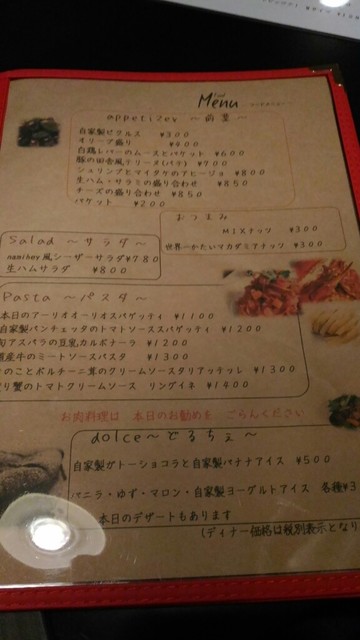 Food
Menu
appetizer ～前菜～
自家製ピクルス ¥300
オリーブ盛り ¥400
白鶏レバーのムースとバケット ¥600
豚の田舎風テリーヌ(パテ) ¥700
シュリンプとマイタケのアヒージョ ¥800
生ハム・サラミの盛り合わせ ¥850
チーズの盛り合わせ ¥850
バケット ¥200
おつまみ
MIXナッツ ¥300
世界一かたいマカダミアナッツ ¥300
Salad ～サラダ～
風シーザーサラダ¥780
生ハムサラダ ¥800
Pasta ～パスタ～
本日のアーリオオーリオスパゲッティ ¥1100
自家製パンチェッタのトマトソーススパゲッティ ¥1200
旬アスパラの豆乳カルボナーラ ¥1200
産牛のミートソースパスタ ¥1300
のことポルチーニ茸のクリームソースタリアッテッレ ¥1300
り蟹のトマトクリームソース リングイネ ¥1400
お肉料理は 本日のお勧めを ごらんください
dolce～どるちぇ～
自家製ガトーショコラと自家製バナナアイス ¥500
バニラ・ゆず・マロン・自家製ヨーグルトアイス 各種¥3
本日のデザートもあります
(ディナー価格は税別表示となり